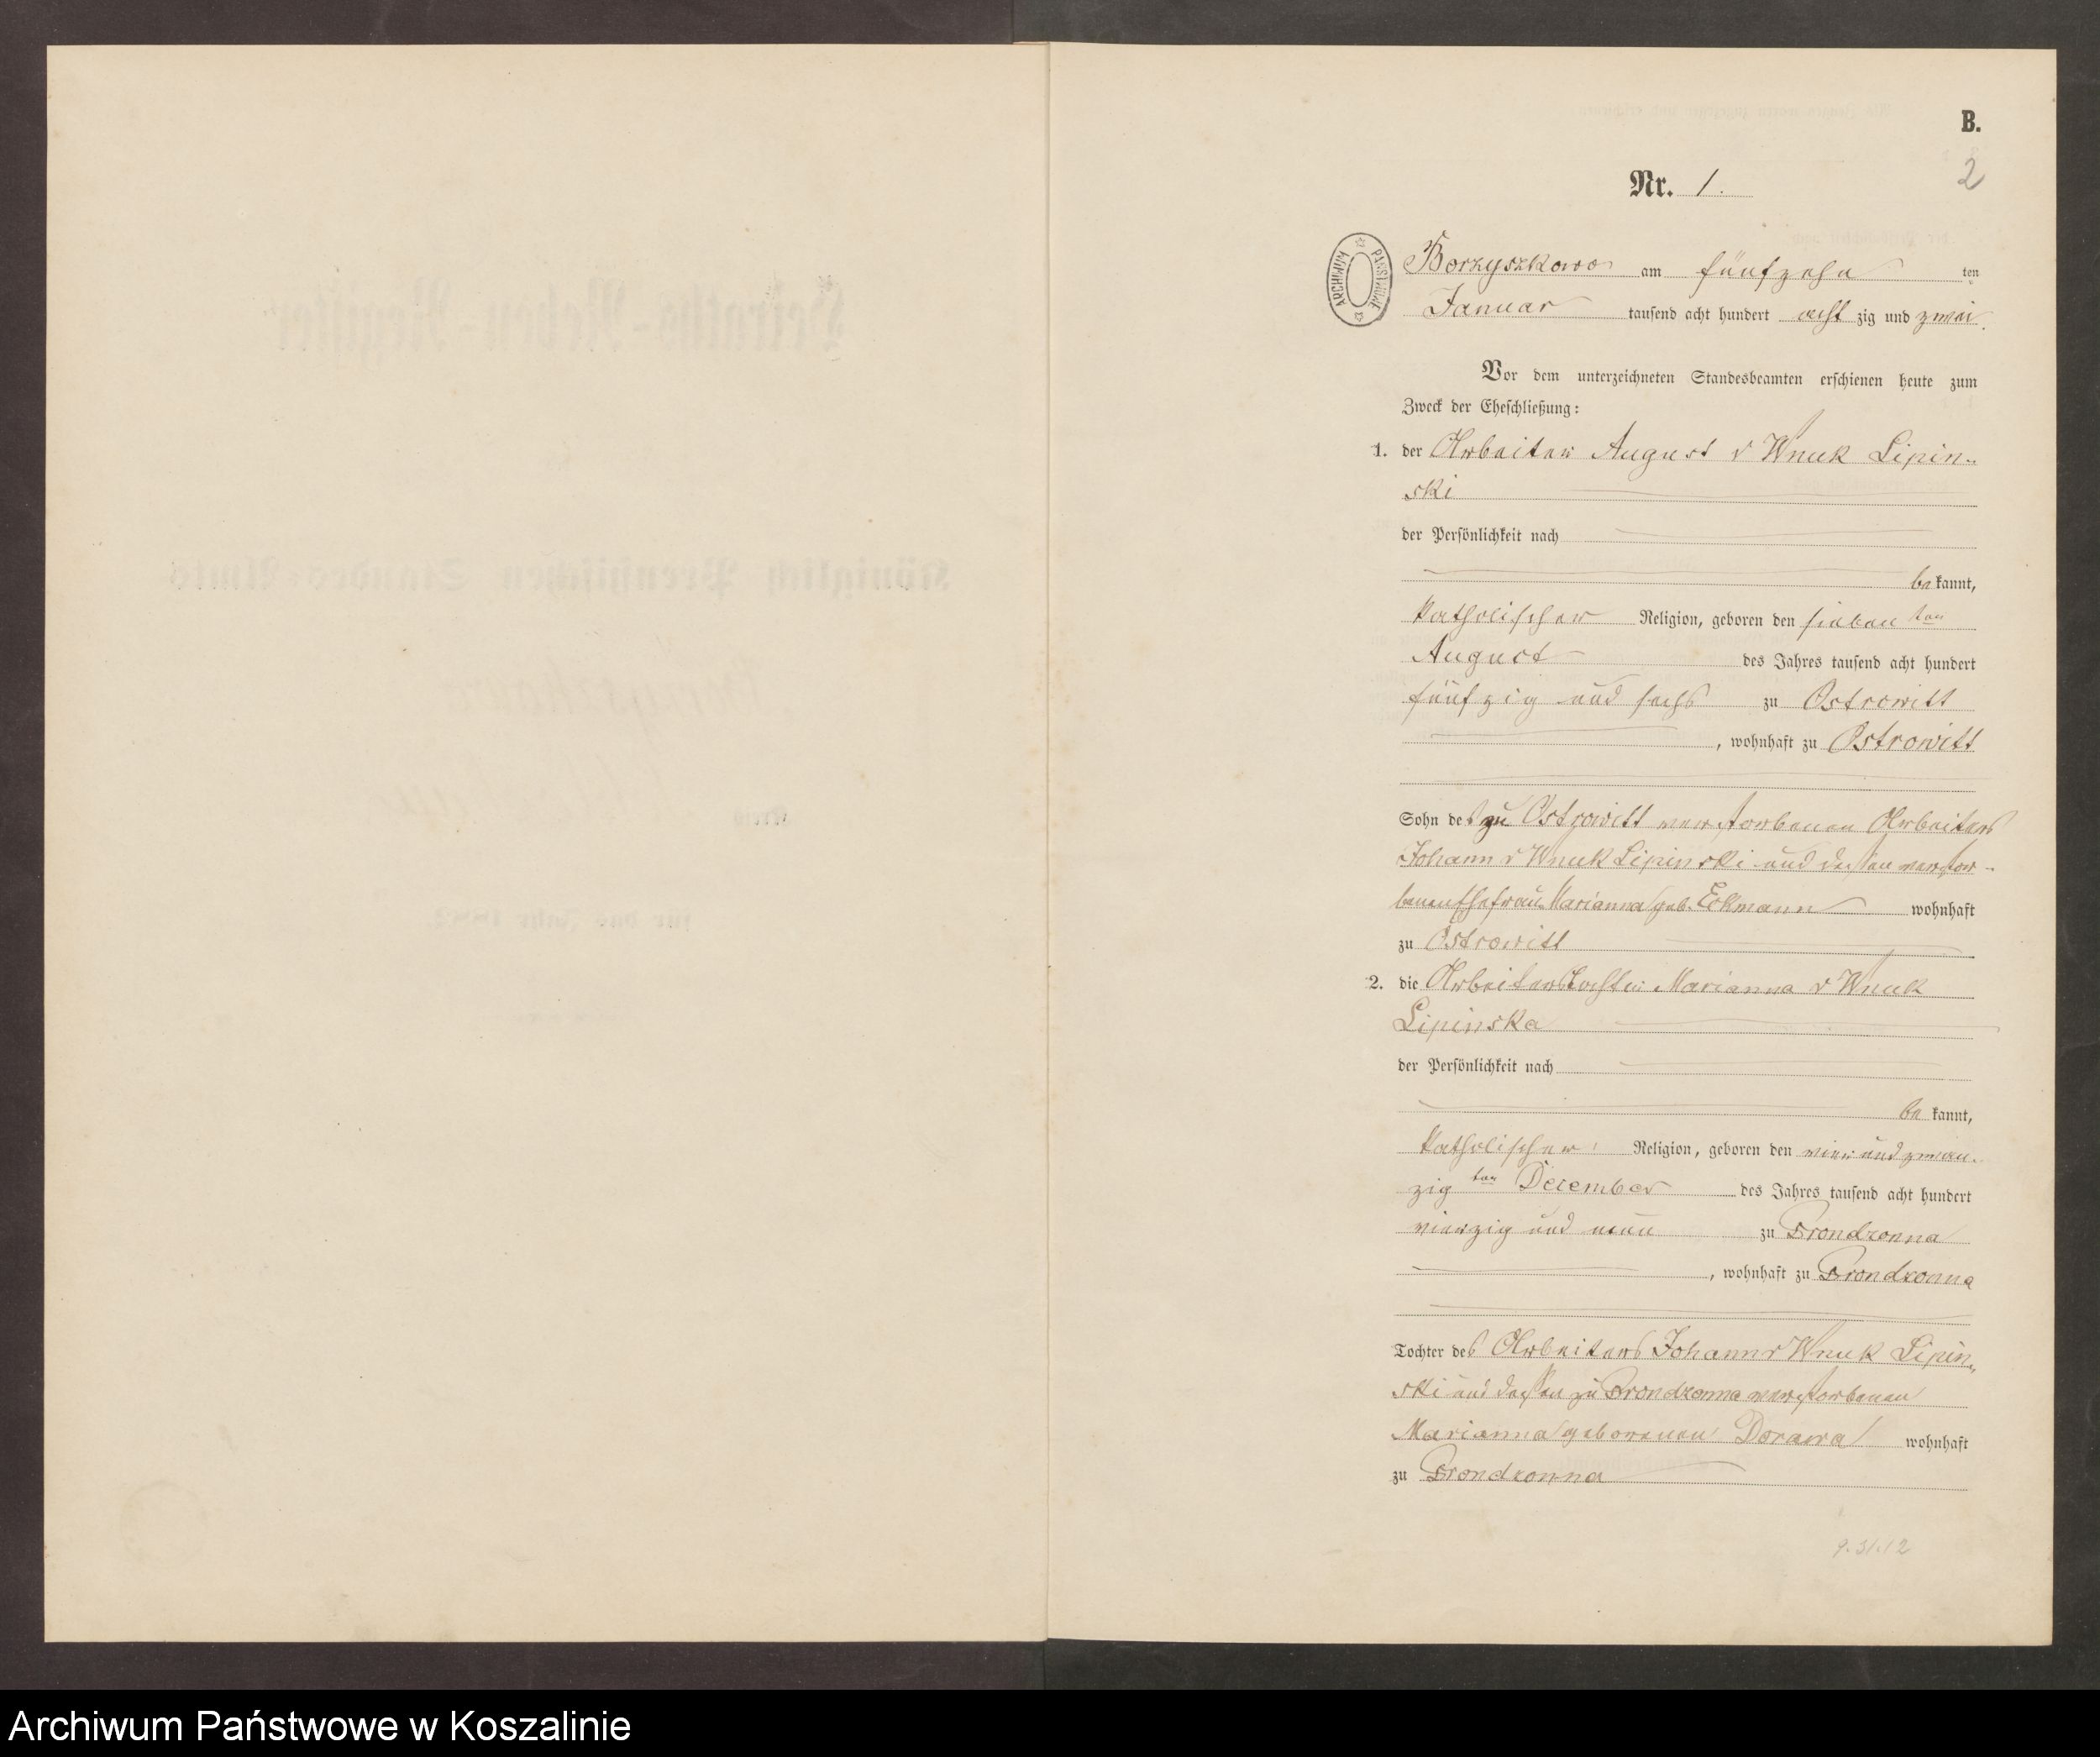 B.
2
Nr. 1.
ARCHIWUM PAŃSTWOWE
Borzyszkowo am fünfzehn ten
Januar tausend acht hundert acht zig und zwei.
Vor dem unterzeichneten Standesbeamten erschienen heute zum
Zweck der Eheschließung:
1. der Arbeiter August v Wnuk Lipin-
ski
der Persönlichkeit nach
be kannt,
katholischer Religion, geboren den sieben ten
August des Jahres tausend acht hundert
fünfzig und sechs zu Ostrowitt
, wohnhaft zu Ostrowitt
Sohn des zu Ostrowitt verstorbenen Arbeiters
Johann v Wnuk Lipinski und dessen verstor-
benen Ehefrau Marianna geb. Eckmann wohnhaft
zu Ostrowitt
2. die Arbeiterstochter Marianna v Wnuk
Lipinska
der Persönlichkeit nach
be kannt,
katholischer Religion, geboren den vier und zwan-
zig ten Dezember des Jahres tausend acht hundert
vierzig und neun zu Prondzonna
, wohnhaft zu Prondzonna
Tochter des Arbeiters Johann v Wnuk Lipin-
ski und dessen zu Prondzonna verstorbenen
Marianna geborenen Dorawa wohnhaft
zu Prondzonna
9.31.12
Heiraths-Neben-Register
Königlich Preußischen Standes-Amts
Borzyszkowo
Kreis
für das Jahr 1882.
Archiwum Państwowe w Koszalinie